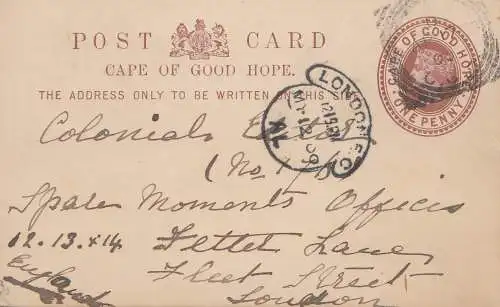 POST CARD
CAPE OF GOOD HOPE.
THE ADDRESS ONLY TO BE WRITTEN ON THIS SIDE
CAPE OF GOOD HOPE
ONE PENNY
LONDON E.C.
Colonial
(No 1
Spare Moments Offices
12.13.&14 Fetter Lane
Fleet Street
England London